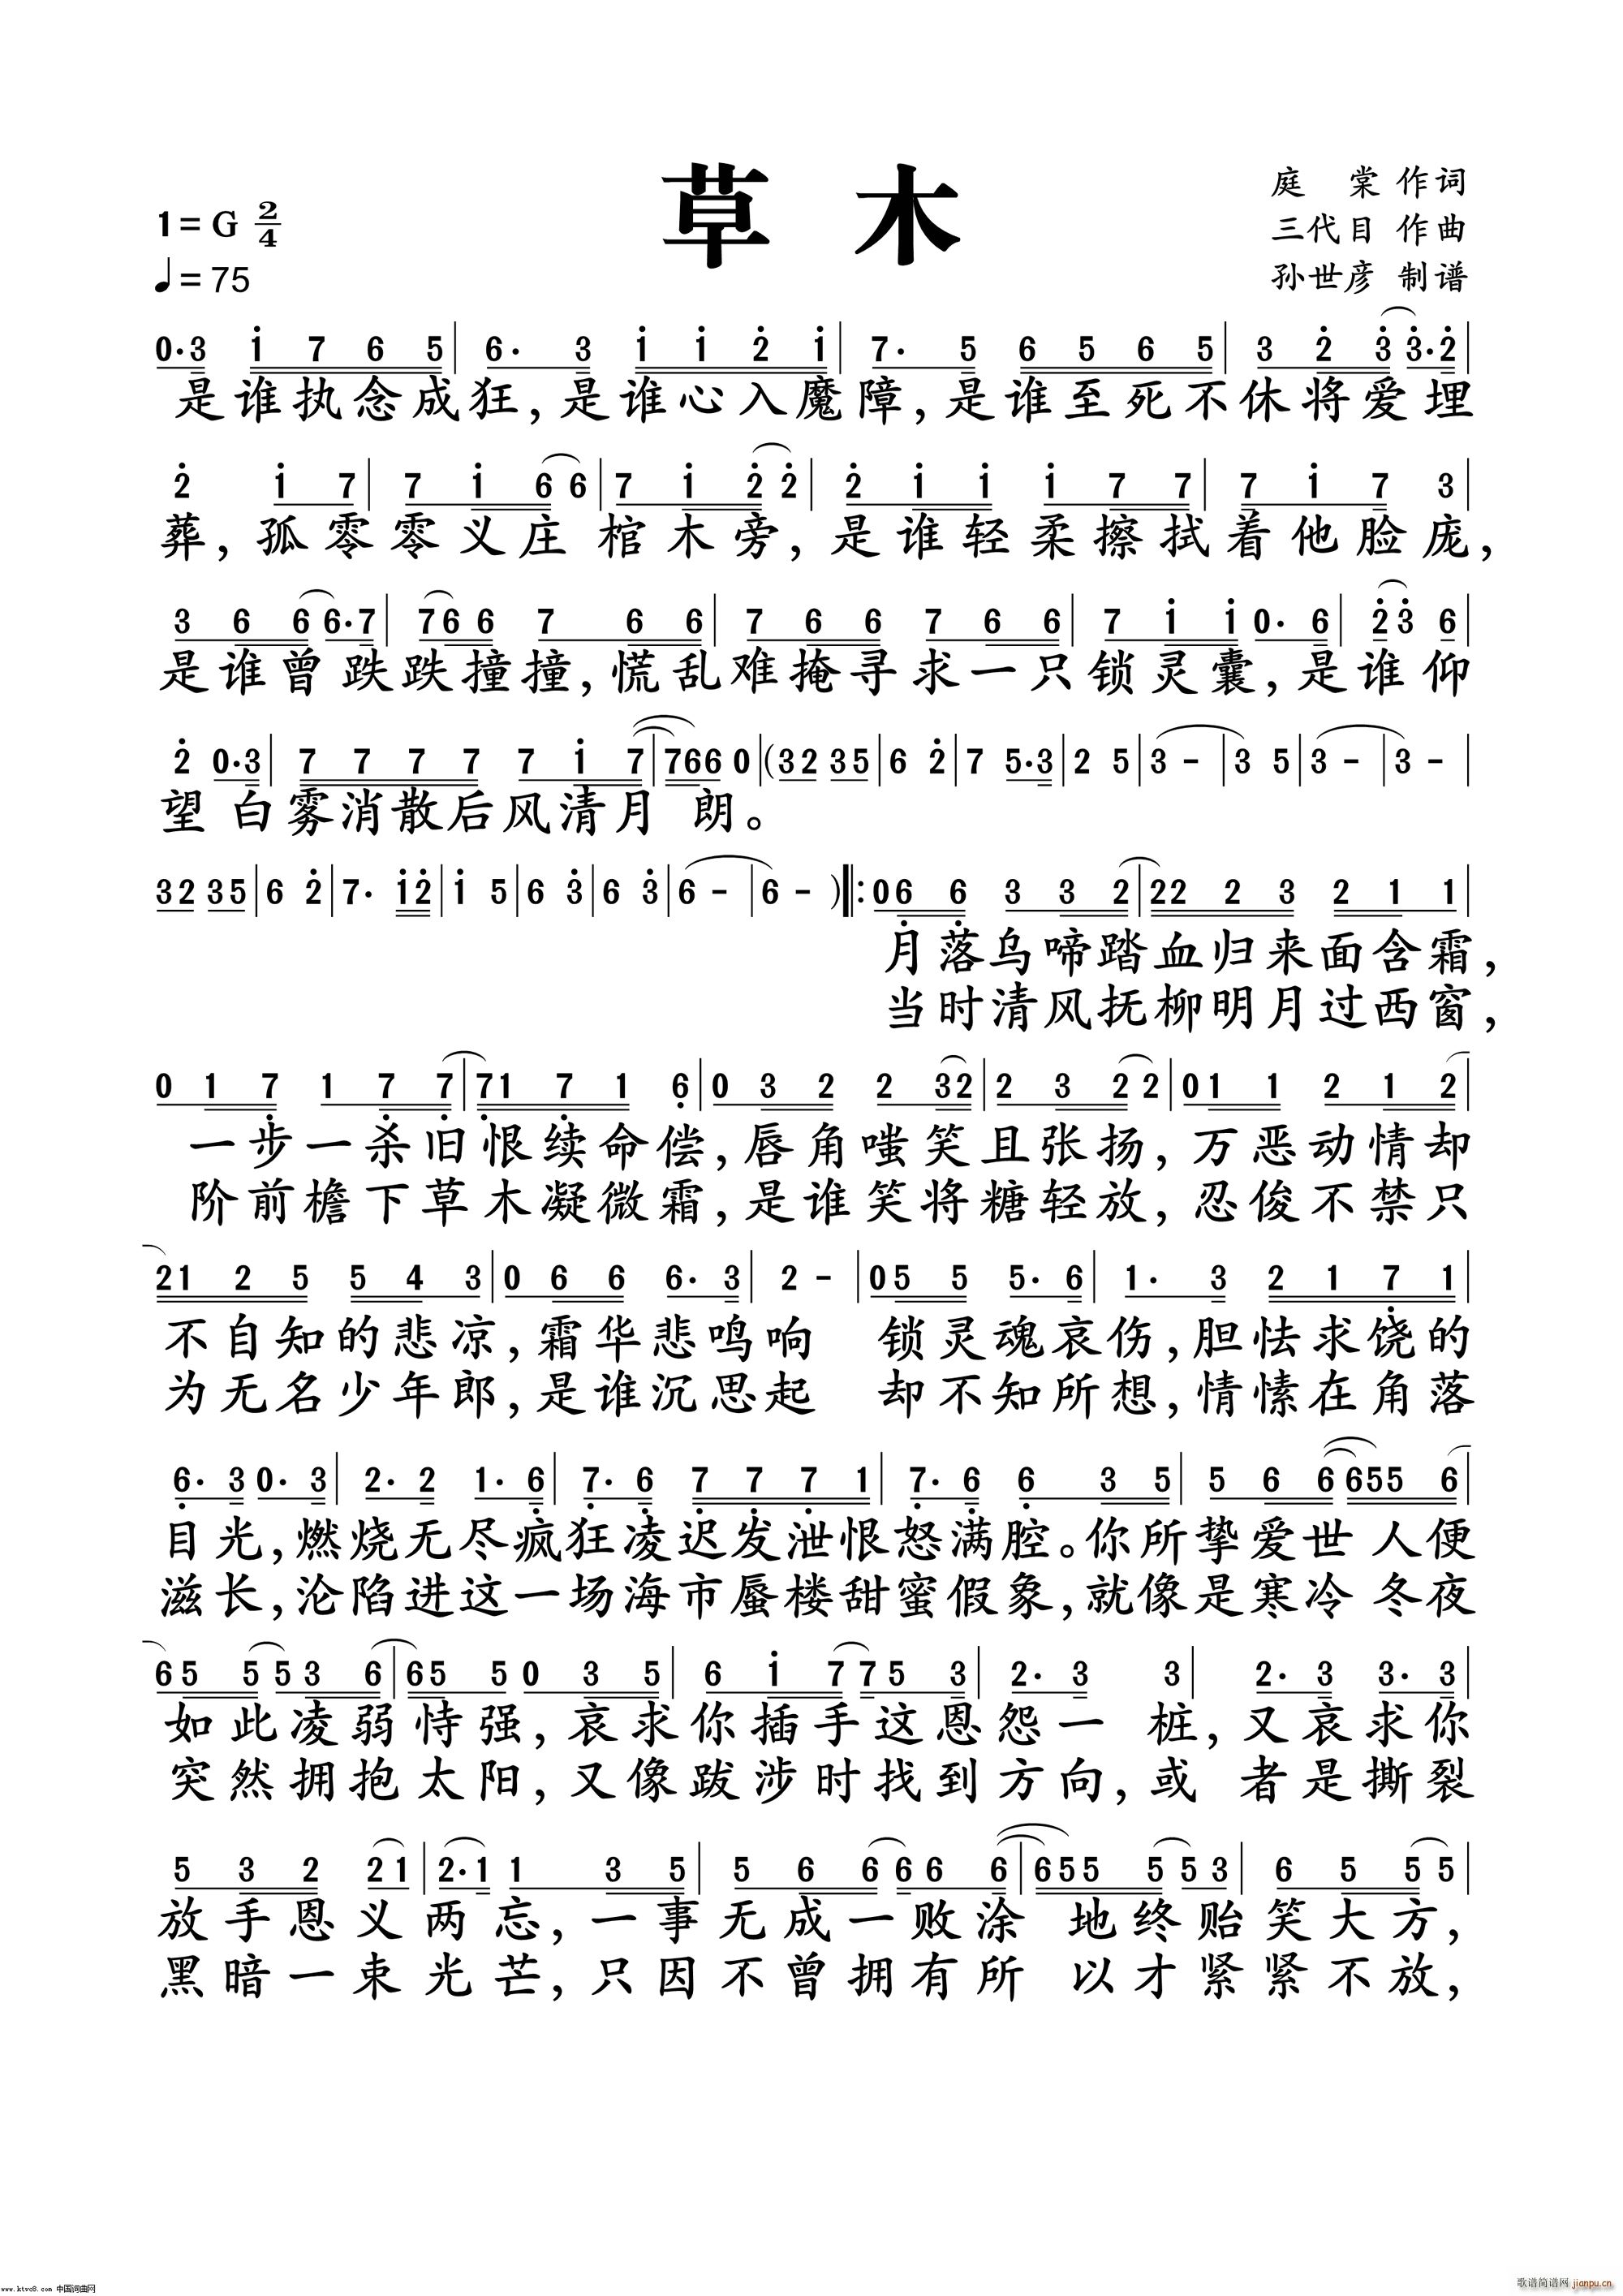 草 木
庭 棠 作词
1= G 2/4
三代目 作曲
♩= 75
孙世彦 制谱
0·3 i 7 6 5 | 6· 3 i i 2̇ i | 7· 5 6 5 6 5 | 3 2̇ 3̇ 3̇·2̇ |
是谁执念成狂,是谁心入魔障,是谁至死不休将爱埋
2̇ i 7 | 7 i 6 6 | 7 i 2̇ 2̇ | 2̇ i i i 7 7 | 7 i 7 3 |
葬,孤零零义庄棺木旁,是谁轻柔擦拭着他脸庞,
3 6 6 6·7 | 7 6 6 7 6 6 | 7 6 6 7 6 6 | 7 i i 0· 6 | 2̇ 3̇ 6 |
是谁曾跌跌撞撞,慌乱难掩寻求一只锁灵囊,是谁仰
2̇ 0·3 | 7 7 7 7 7 i 7 | 7 6 6 0 | (3 2 3 5 | 6 2̇ | 7 5·3 | 2 5 | 3 - | 3 5 | 3 - | 3 - |
望白雾消散后风清月 朗。
3 2 3 5 | 6 2̇ | 7· i 2̇ | i 5 | 6 3̇ | 6 3̇ | 6 - | 6 - ) ‖: 0 6̣ 6̣ 3 3 2 | 2 2 2 3 2 1 1 |
月落乌啼踏血归来面含霜,
当时清风抚柳明月过西窗,
0 1 7̣ 1 7̣ 7̣ | 7̣ 1 7̣ 1 6̣ | 0 3 2 2 3 2 | 2 3 2 2 | 0 1 1 2 1 2 |
一步一杀旧恨续命偿,唇角嗤笑且张扬,万恶动情却
阶前檐下草木凝微霜,是谁笑将糖轻放,忍俊不禁只
2 1 2 5 5 4 3 | 0 6 6 6· 3 | 2 - | 0 5 5 5· 6 | 1· 3 2 1 7̣ 1 |
不自知的悲凉,霜华悲鸣响 锁灵魂哀伤,胆怯求饶的
为无名少年郎,是谁沉思起 却不知所想,情愫在角落
6̣· 3 0· 3 | 2· 2 1· 6̣ | 7̣· 6̣ 7̣ 7̣ 7̣ 1 | 7̣· 6̣ 6̣ 3 5 | 5 6 6 6 5 5 6 |
目光,燃烧无尽疯狂凌迟发泄恨怒满腔。你所挚爱世 人便
滋长,沦陷进这一场海市蜃楼甜蜜假象,就像是寒冷 冬夜
6 5 5 5 3 6 | 6 5 5 0 3 5 | 6 i 7 7 5 3 | 2· 3 3 | 2· 3 3· 3 |
如此凌弱恃强,哀求你插手这恩怨一 桩,又哀求你
突然拥抱太阳,又像跋涉时找到方向,或 者是撕裂
5 3 2 2 1 | 2·1 1 3 5 | 5 6 6 6 6 6 | 6 5 5 5 5 3 | 6 5 5 5 |
放手恩义两忘,一事无成一败涂 地终贻笑大方,
黑暗一束光芒,只因不曾拥有所 以才紧紧不放,
www.ktvc8.com 中国词曲网
歌谱简谱网 jianpu.cn